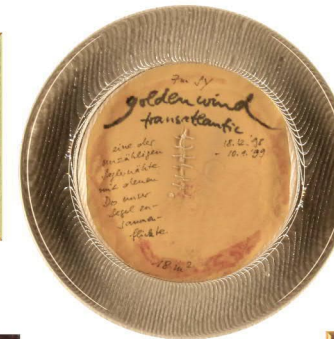 Zur SY
goldenwind
transatlantic
18.12.'98
- 10.1.'99
eine der
unzähligen
Segelnähte
mit denen
Du unser
Segel zu-
sammen-
flickte